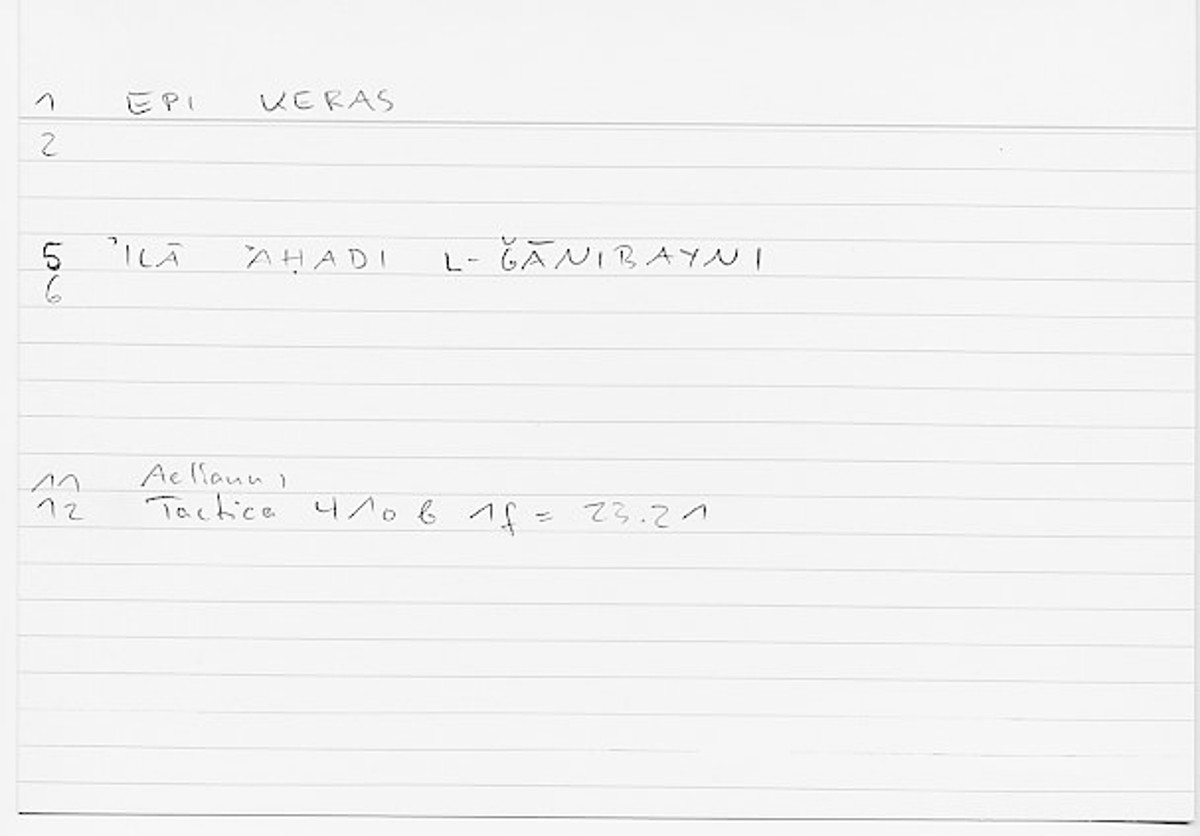 1 EPI KERAS
2
5 ʾILĀ ʾAḤADI L-ǦĀNIBAYNI
6
11 Aelianus,
12 Tactica 410 b 1f = 23.21